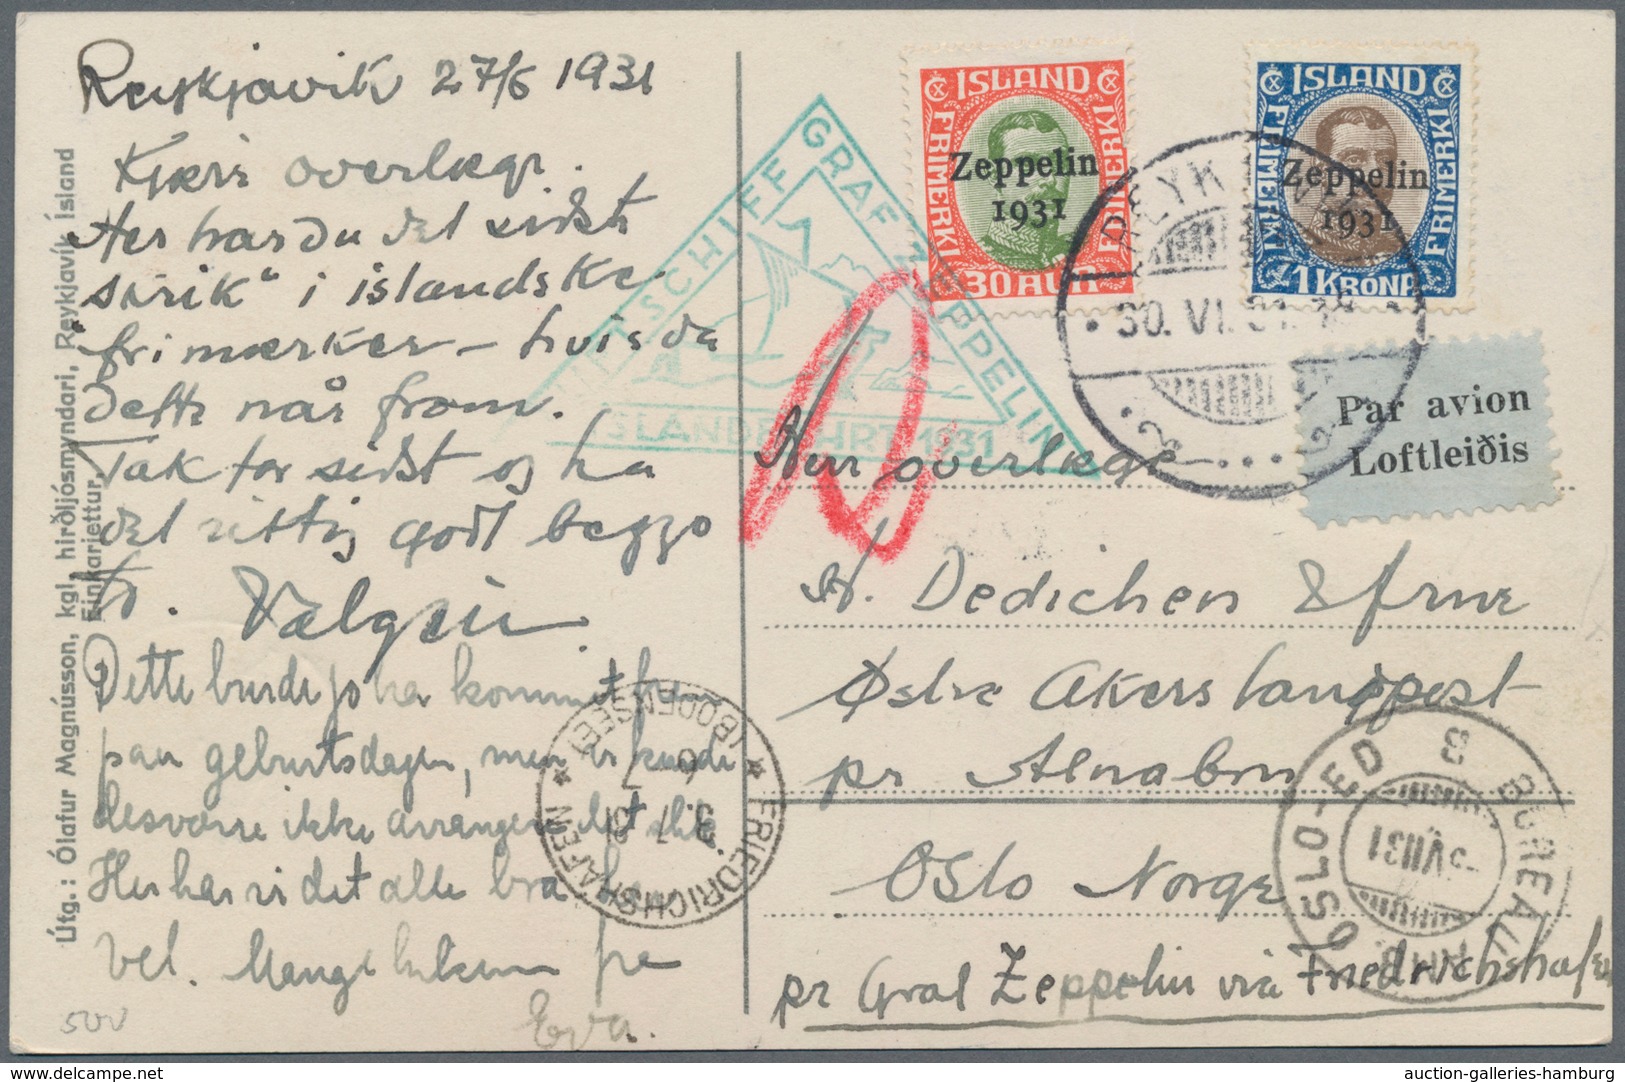 Reykjavik 27/6 1931
Kjære overlæge.
Her har du det sidste
skrik" i islandske
frimærker – hvis da
dette når fram.
Tak for sidst og ha
det rittig godt begge
to. Valgein
Dette burde jo ha kommet frem
paa geburtsdagen, men vi kunde
desværre ikke arrangere det slik.
Her har vi det alle bra
vel. Mange hilsener fra
Eva.
500
Útg.: Ólafur Magnússon, kgl. hirðljósmyndari, Reykjavík Ísland
Einkarjettur.
LUFTSCHIFF GRAF ZEPPELIN
ISLANDFAHRT 1931
ÍSLAND
FRIMERKI FRIMERKI
Zeppelin
1931
30 AUR
ÍSLAND
FRIMERKI FRIMERKI
Zeppelin
1931
1 KRONA
REYKJAVIK
30. VI. 31.
Par avion
Loftleiðis
Herr overlæge
H. Dedichen & frue
Østre Akers landpost
pr Alnabru
Oslo Norge
pr Graf Zeppelin via Friedrichshafen
FRIEDRICHSHAFEN
(BODENSEE)
3.7.31
6-7
OSLO-ED 8 BUREAU
VII 31
auction-galleries-hamburg